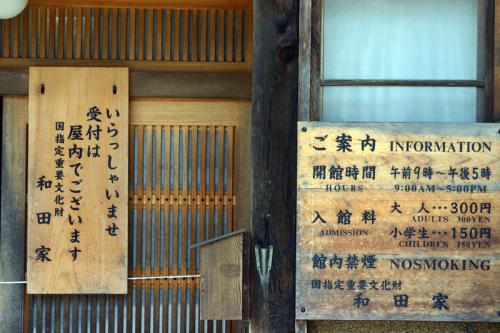 いらっしゃいませ
受付は
屋内でございます
国指定重要文化財
和田家
ご案内 INFORMATION
開館時間 午前9時～午後5時
HOURS 9:00AM～5:00PM
入館料 大人…300円
ADULTS 300YEN
ADMISSION 小学生…150円
CHILDREN 150YEN
館内禁煙 NOSMOKING
国指定重要文化財
和田家